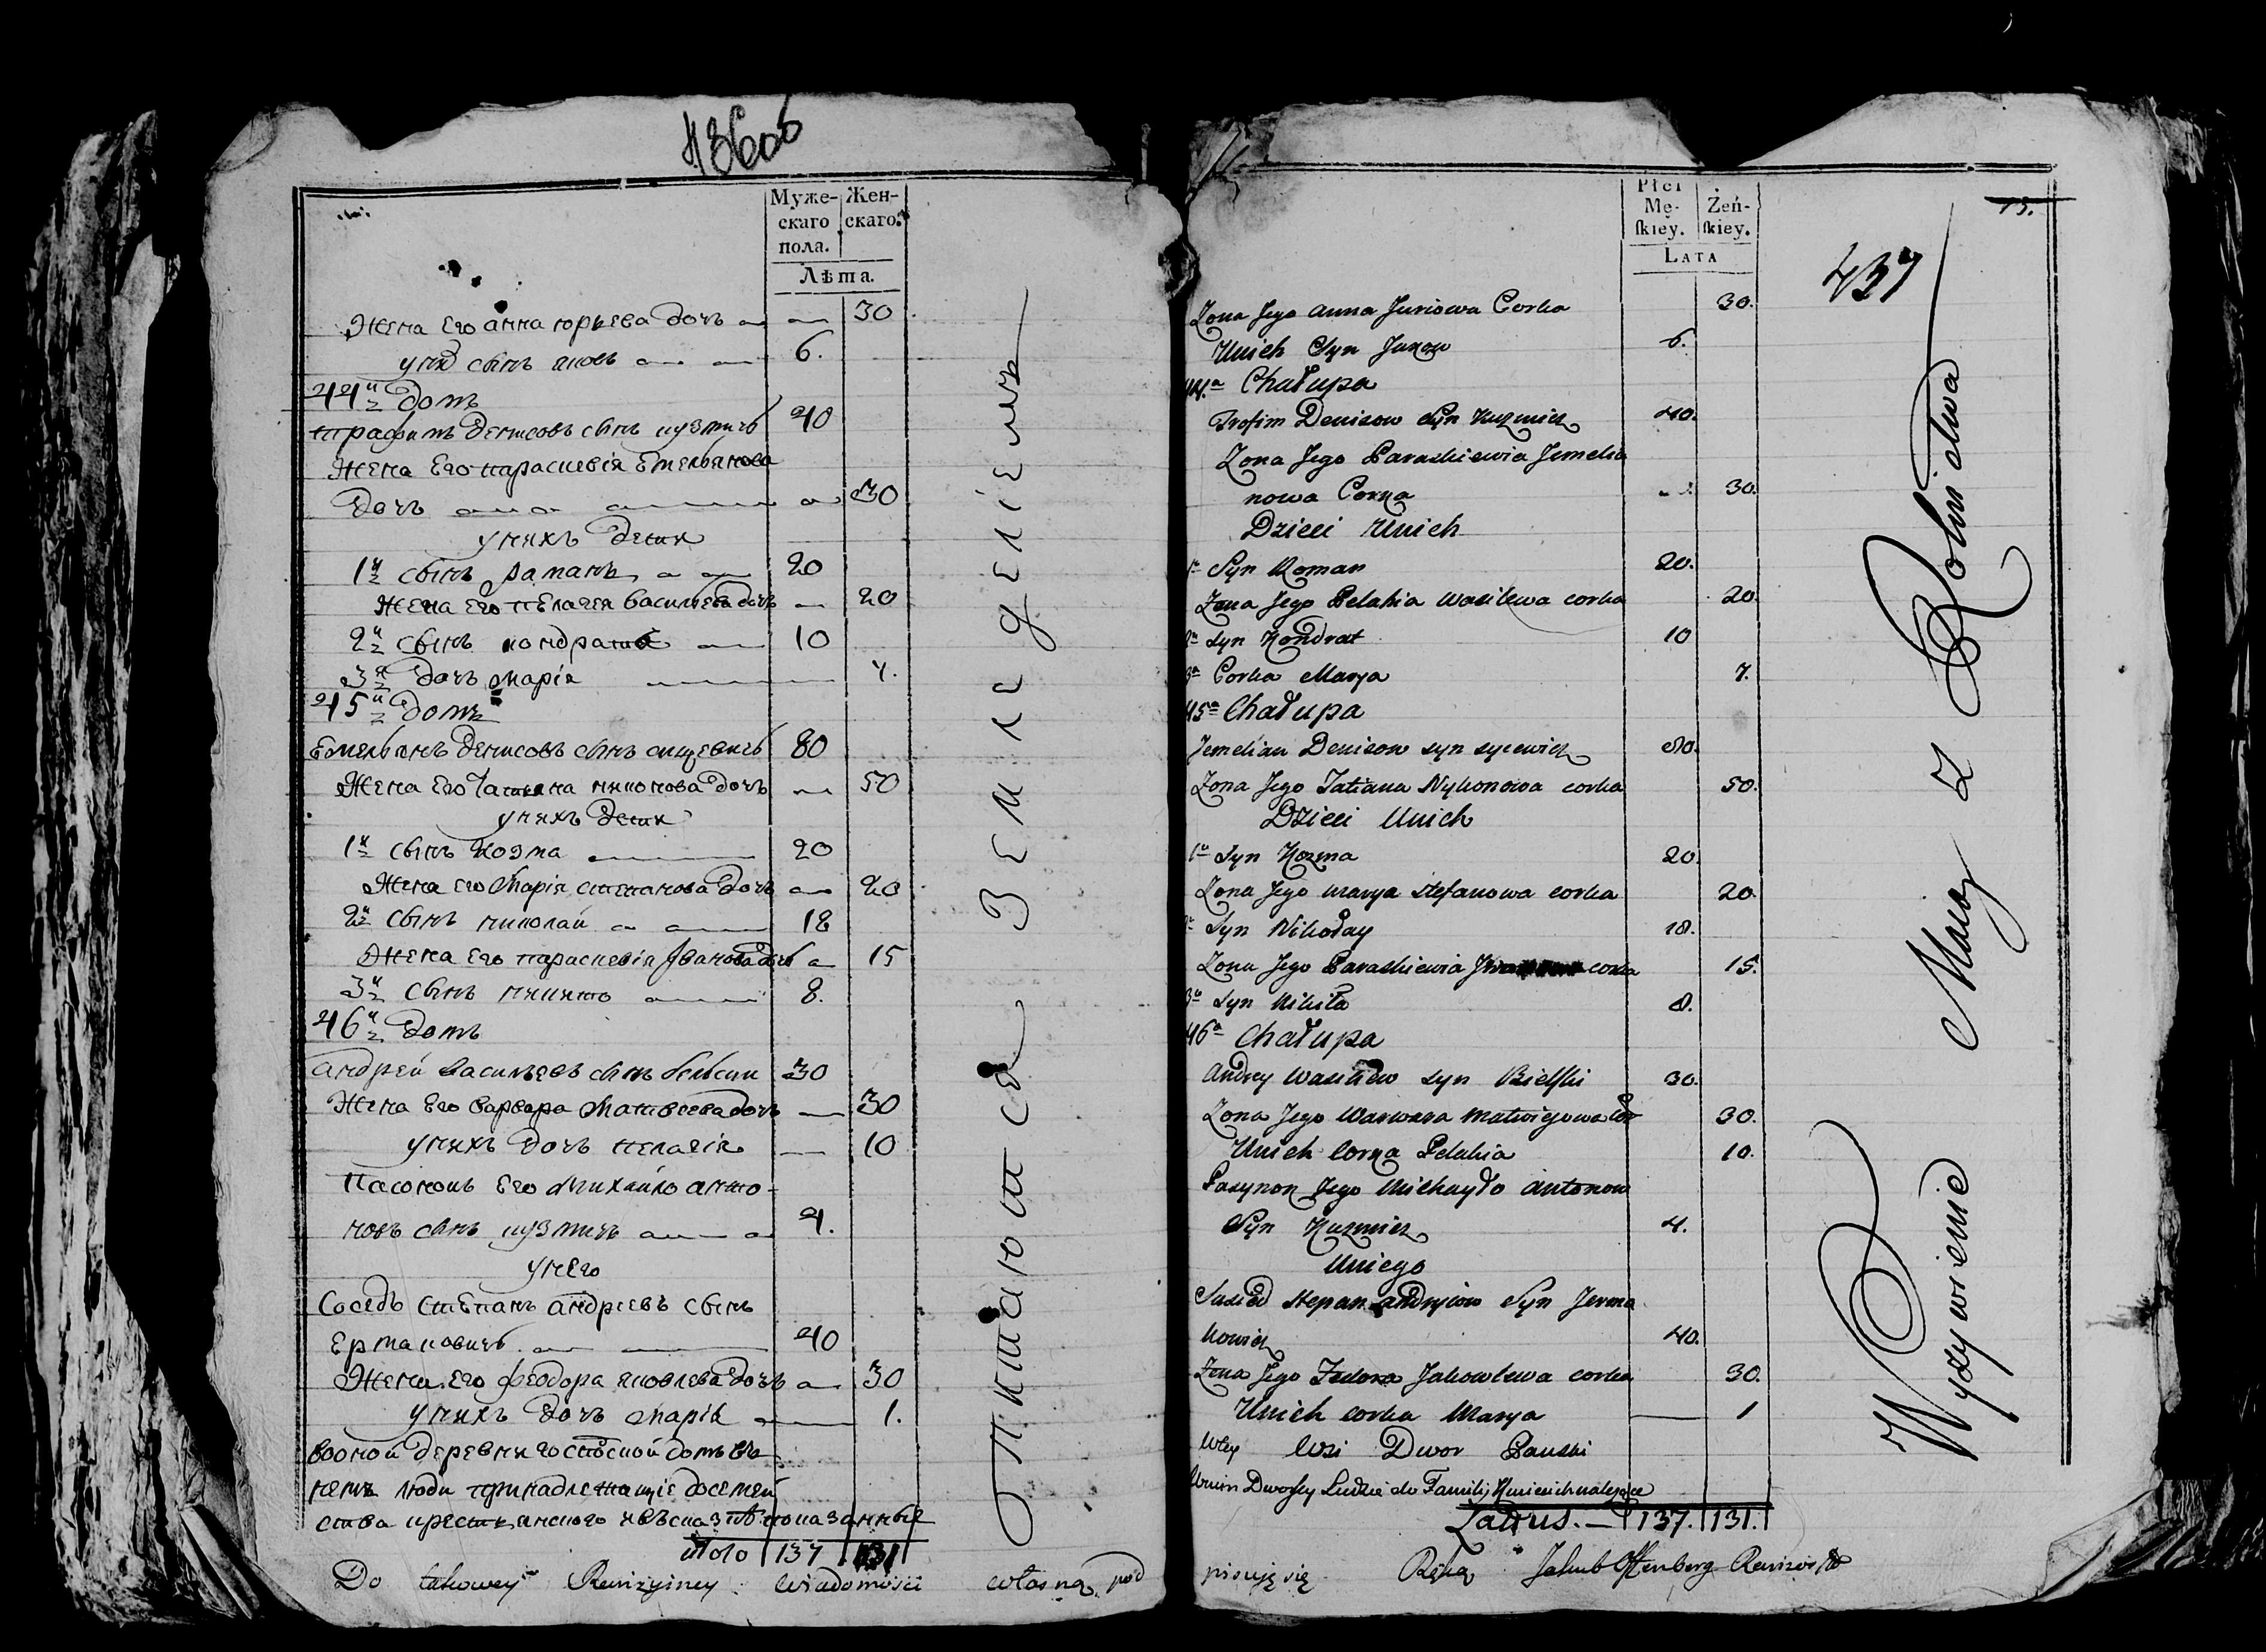 436об
Муже- Жен-
скаго скаго.
пола.
Лѣта.
Жена Его анна юрьева дочь 30
уних сынъ яковъ 6.
44й домъ
трафимъ денисовъ сынъ кузмичь 40
Жена Его параскевія Емельянова
дочь 30
унихъ дети
1й сынъ раманъ 20
жена его пелагея васильева дочь 20
2й сынъ кондратъ 10
3я дочь марія 7.
45й домъ
Емельянъ денисовъ сынъ сицевичь 80
Жена Его Татияна никонова дочь 50
унихъ дети
1й сынъ козма 20
Жена его Марія степанова дочь 20
2й сынъ николаи 18
Жена Его параскевія Іванова дочь 15
3й сынъ никито 8.
46й домъ
андреи васильевъ сынъ бельски 30
Жена Его варвара Матвеева дочь 30
унихъ дочь пелагія 10
Пасонокъ Его Михаило анто-
новъ сынъ кузмичъ 4.
унего
Соседъ степанъ андреевъ сынъ
Ермаковичъ 40
Жена Его феодора яковлева дочь 30
унихъ дочь марія 1.
воонои деревни господской домъ въ
немъ люди принадлежащіе досемеи
ства крестьянского
итого 137 131
Земледеліемъ
Питаются
Do takowey Rewizyiney wiadomości własną pod
Płci
Mę- Żeń-
skiey. skiey.
Lata
15.
437
Zona Jego anna Juriowa Corka 30.
Unich Syn Jakow 6.
44.a Chałupa
Trofim Denisow Syn Kuzmicz 40.
Zona Jego Paraskiewia Jemelia
nowa Corka 30.
Dzieci Unich
1o Syn Roman 20.
Zona Jego Pelahia Wasilewa corka 20.
2o Syn Kondrat 10
3a Corka Marya 7.
45a Chałupa
Jemelian Denisow syn sycewicz 80.
Zona Jego Tatiana Nykonowa corka 50.
Dzieci Unich
1o Syn Kozma 20.
Zona Jego Marya Stefanowa corka 20.
2o Syn Nikołay 18.
Zona Jego Paraskiewia corka 15.
3o Syn Nikita 8.
46a Chałupa
Andrey Wasilew syn Bielski 30.
Zona Jego Warwara Matwiejowa Cor 30.
Unich Corka Pelahia 10.
Pasynok Jego Michayło Antonow
Syn Kuzmicz 4.
Uniego
Susied Stepan Andryiow Syn Jerma
kowicz 40.
Zona Jego Fedora Jakowlewa corka 30.
Unich corka Marya 1
Wtey Wsi Dwor Panski
Dworscy Ludzie do Familij
Latus. 137. 131.
Wyzywienie Maią z Rolnictwa
pisuję się Ręką Jakub Offenberg Rewizor